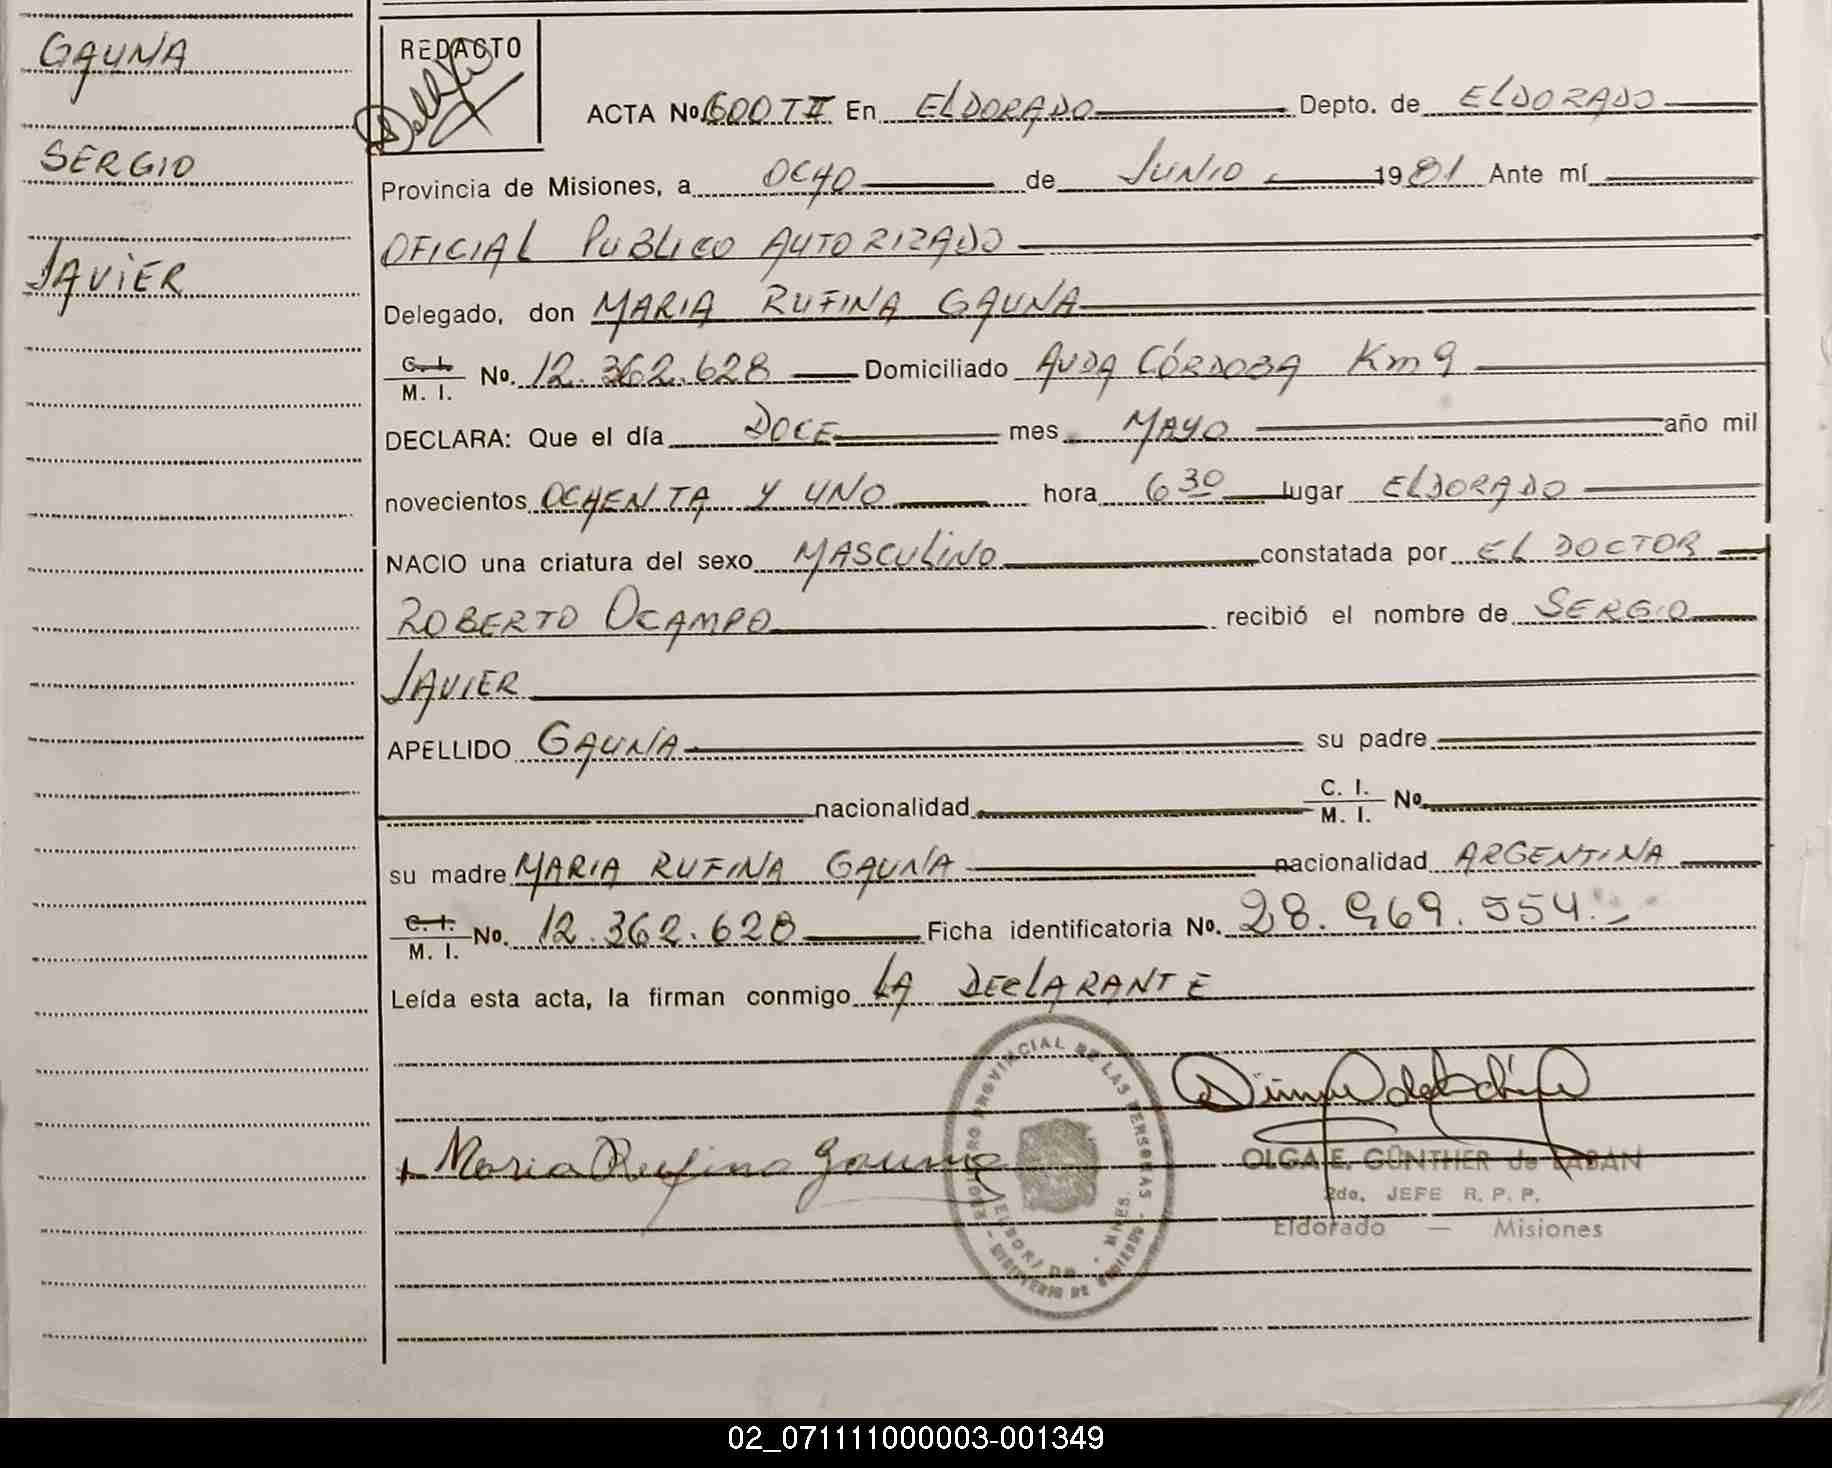 GAUNA
SERGIO
JAVIER
REDACTO
ACTA No. 600 T II En ELDORADO Depto. de ELDORADO
Provincia de Misiones, a OCHO de JUNIO 1981 Ante mí
OFICIAL PUBLICO AUTORIZADO
Delegado, don MARIA RUFINA GAUNA
C. I. M. I. No. 12.362.628 Domiciliado AVDA CÓRDOBA Km 9
DECLARA: Que el día DOCE mes MAYO año mil
novecientos OCHENTA Y UNO hora 6 30 lugar ELDORADO
NACIO una criatura del sexo MASCULINO constatada por EL DOCTOR
ROBERTO OCAMPO recibió el nombre de SERGIO
JAVIER
APELLIDO GAUNA su padre
nacionalidad C. I. M. I. No.
su madre MARIA RUFINA GAUNA nacionalidad ARGENTINA
C. I. M. I. No. 12.362.628 Ficha identificatoria No. 28.969.554.-
Leída esta acta, la firman conmigo LA DECLARANTE
Maria Rufina Gauna
REGISTRO PROVINCIAL DE LAS PERSONAS - MINISTERIO DE GOBIERNO
ELDORADO - MNES.
OLGA E. GÜNTHER de LABAN
2do. JEFE R. P. P.
Eldorado — Misiones
02_071111000003-001349